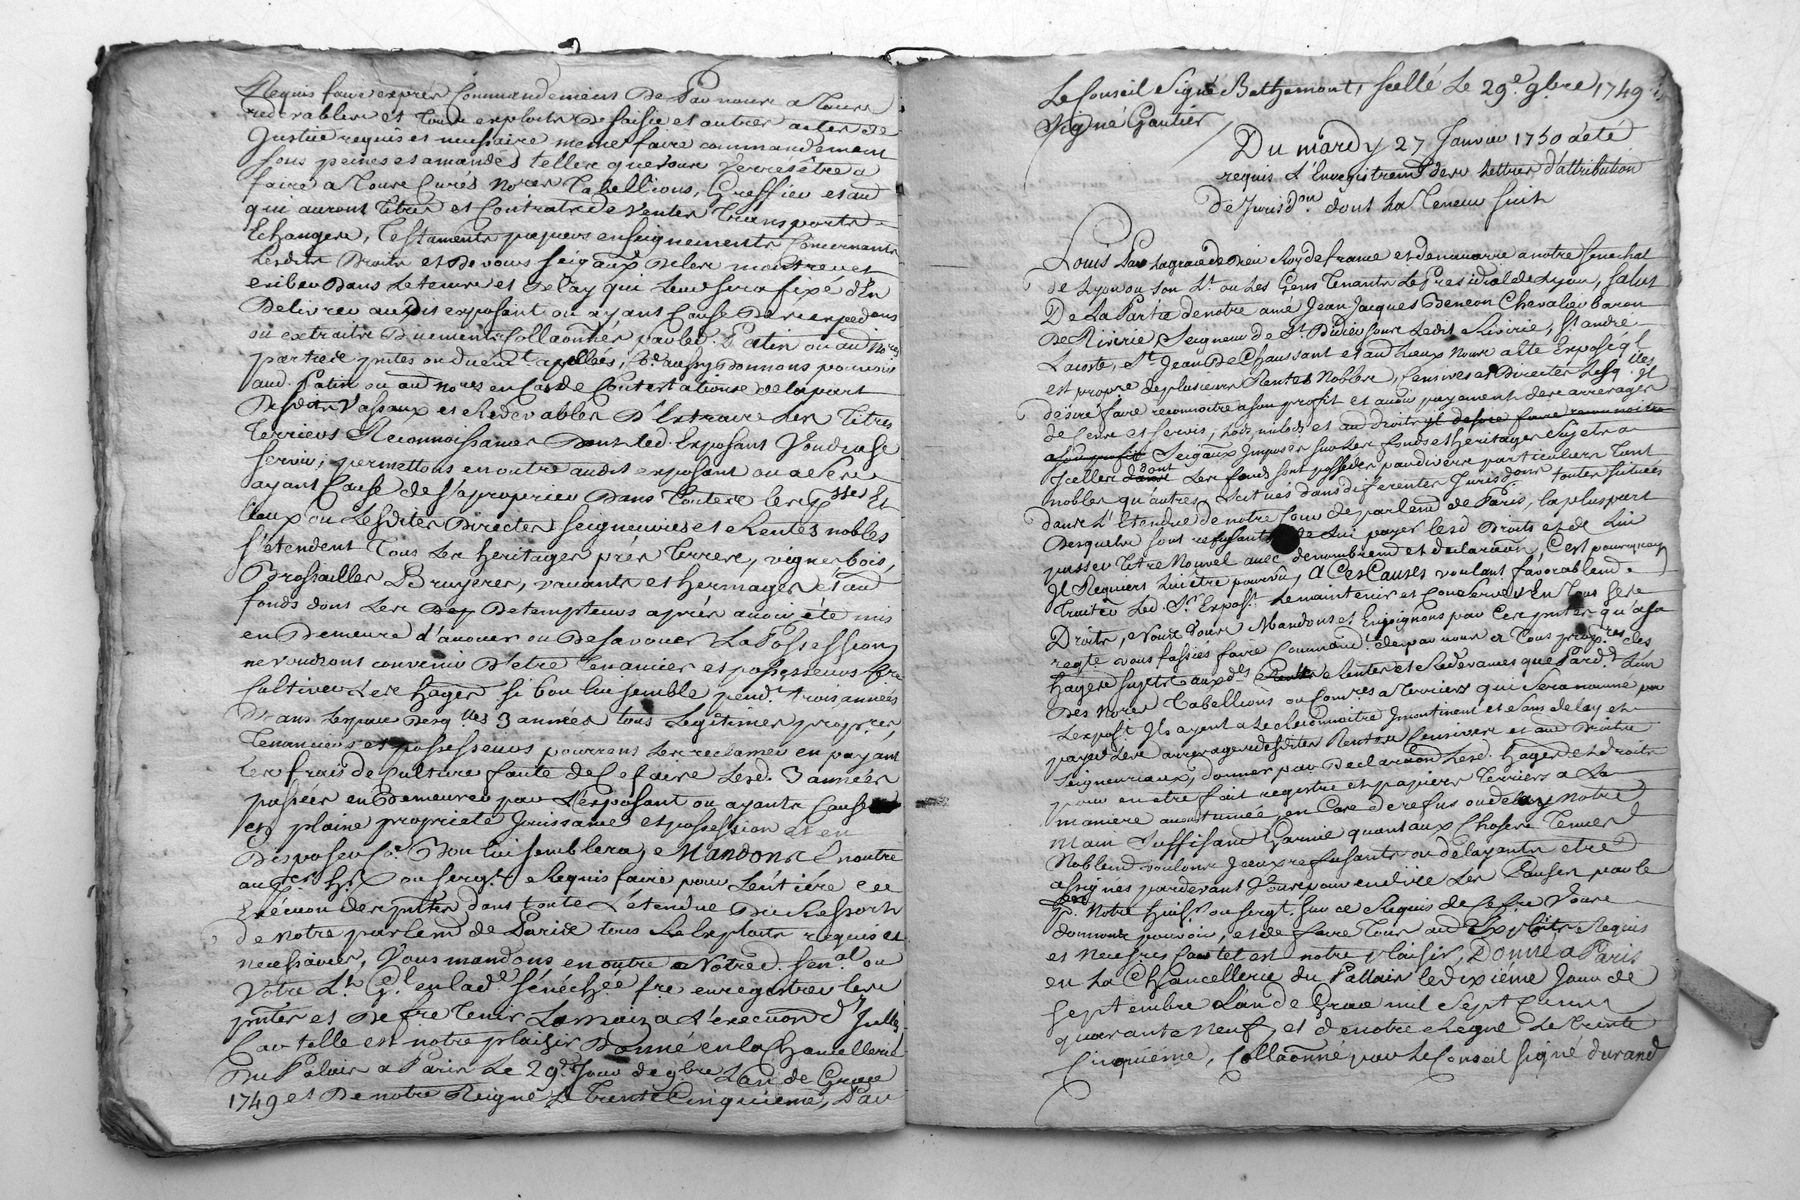 Requis faire exprès Commandement De Par nous a Tous
redevables et Tous exploits De saisie et autres actes de
Justice requis et necessaire meme faire commandement
sous peines et amandes telles que vous Verrés être a
faire a Tous Curés Nores Tabellions, Greffiers et au
qui auront Titres et Contrats de Ventes Transports
Echanges, Testaments papiers enseignements Concernants
Lesdits Droits et De vous seigaux De les montrer et
exiber Dans Letems et Delay qui Leur sera fixé d'En
Delivrer audit exposant ou ayant Cause Des expedons
ou extraits Duement Collaonnés par led. Patin ou au Nores
parties pntes ou duemt apellées, De ce aussy Donnons pouvoir
aud. Patin ou au nores en Cas de Contestations de la part
Desdits Vassaux et Redevables D'Extraire Les Titres
Terriers Reconnoissances Dont led. Exposant Voudra se
servir; permettons en outre audit exposant ou a ses
ayant Cause de s'aproprier Dans Toutes les Psses Et
lieux ou Lesdites Directes seigneuries et Rentes nobles
s'étendent Tous Les heritages prés Terres, vignes bois,
Brossailles Bruyeres, vacants et hermages et au
fonds dont Les Dep Detempteurs après avoir été mis
en Demeure d'avouer ou Desavouer La Possession
ne voudront convenir D'être Tenanciers et possesseurs fre
Cultiver Les hages si bon lui semble pendt trois années
Dans Lespace Desqlles 3 années tous Legetimes proprres,
Tenanciers et possesseurs pourront Les reclamer en payant
Les frais de Culture faute de Ce faire Lesd. 3 années
passées en Demeurer par L'exposant ou ayants Cause
en plaine propriete Jouissance et possession et en
Disposer Ce Bon lui semblera, Mandons Enoutre
au per hr ou sergt Requis faire pour L'entiére
Exécuon des pntes dans toute L'étendue Du Ressort
de Notre parlemt de Paris tous Les Exploits requis et
necessaires, Vous mandons en outre a Notre d. senal ou
Votre Lt Gl en lad. sénéchee fre enregistrer les
pntes et De fre Tenir La main a L'execuon d'Icelles
Car telle est notre plaisir Donné en la Chancellerie
Du Palais a Paris Le 29e Jour de 9bre L'an de Grace
1749 et De notre Reigne Le Trente Cinquieme, Par
Le Conseil Signé Bethemont, scellé Le 29e 9bre 1749
Signé Gautier
Du mardy 27 Janvier 1750 a été
requis L'Enregistremt des Lettres d'attribution
De Jurisdon dont La Teneur suit
Louis Par La grace de Dieu Roy de france et de navarre a notre Senechal
de Lyon ou son Lt ou Les Gens Tenants Le Presidial de Lyon, Salut
De La Part de notre amé Jean Jacques Deneon Chevalier baron
De Riverie, Seigneur de St Didier sous Ledit Riverie, St andré
Lacoste, St Jean De Chaussant et au Lieux Nous a Eté Exposé ql
est propre de plusieurs Rentes Nobles, Censives et Directes Lesqlles Il
desire faire reconnoitre a son profit et avoir payement des arrerages
de Cens et Servis, Lods milods et au droits yl desire faire reconnoitre
a son profit Seigaux Imposés sur Les fonds et heritages Sujets a
Icelles dans dont Les fonds sont possedés par divers particuliers Tant
nobles qu'autres Scitués dans differentes Jurisdons toutes situées
dans L'Etendue de notre Cour de parlemt de Paris, la plus part
Desquels sont refusants de Lui payer lesd Droits et de Lui
passer Titre Nouvel avec denombremt et declaraon, C'est pourquoy
Il Requiert Lui être pourvu, A Ces Causes voulant favorablemt
Traiter Led Sr Expost Le maintenir et Conserver En Tous ses
Droits, Nous Vous Mandons et Enjoignons par Ces pntes qu'a sa
reqte vous fassiés faire Commandt de par nous a Tous proprres des
hages Sujets auxds Rentes Rentes et Redevances que Pardt L'un
Des Nores Tabellions ou Comres a Terriers qui Sera nommé par
L'expost Ils ayent a Le Reconnoitre Incontinent et sans delay et
payer Les arrerages desdites Rentes Censives et au Droits
Seigneuriaux, donner par Declaraon Lesd. hages et droits
pour en etre fait registre et papiers Terriers a La
maniere accoutumée, en Cas de refus ou delay Notre
Main Suffisamt Garnie quant aux Choses Tenues
Noblemt voulons Iceux refusants ou delayants etre
assignés pardevant Vous pour en dire Les Causes par le
per Notre huissr ou sergt sur ce Requis de Ce fre Vous
donnons pouvoir, et de faire Tous au Exploits Requis
et Necesres Car tel est notre plaisir, Donné a Paris
en La Chancellerie du Pallais le dixième Jour de
Septembre L'an de Grace mil Sept Cents
quarante Neuf, et de notre Regne Le trente
Cinquiéme, Collaonné par Le Conseil signé durand